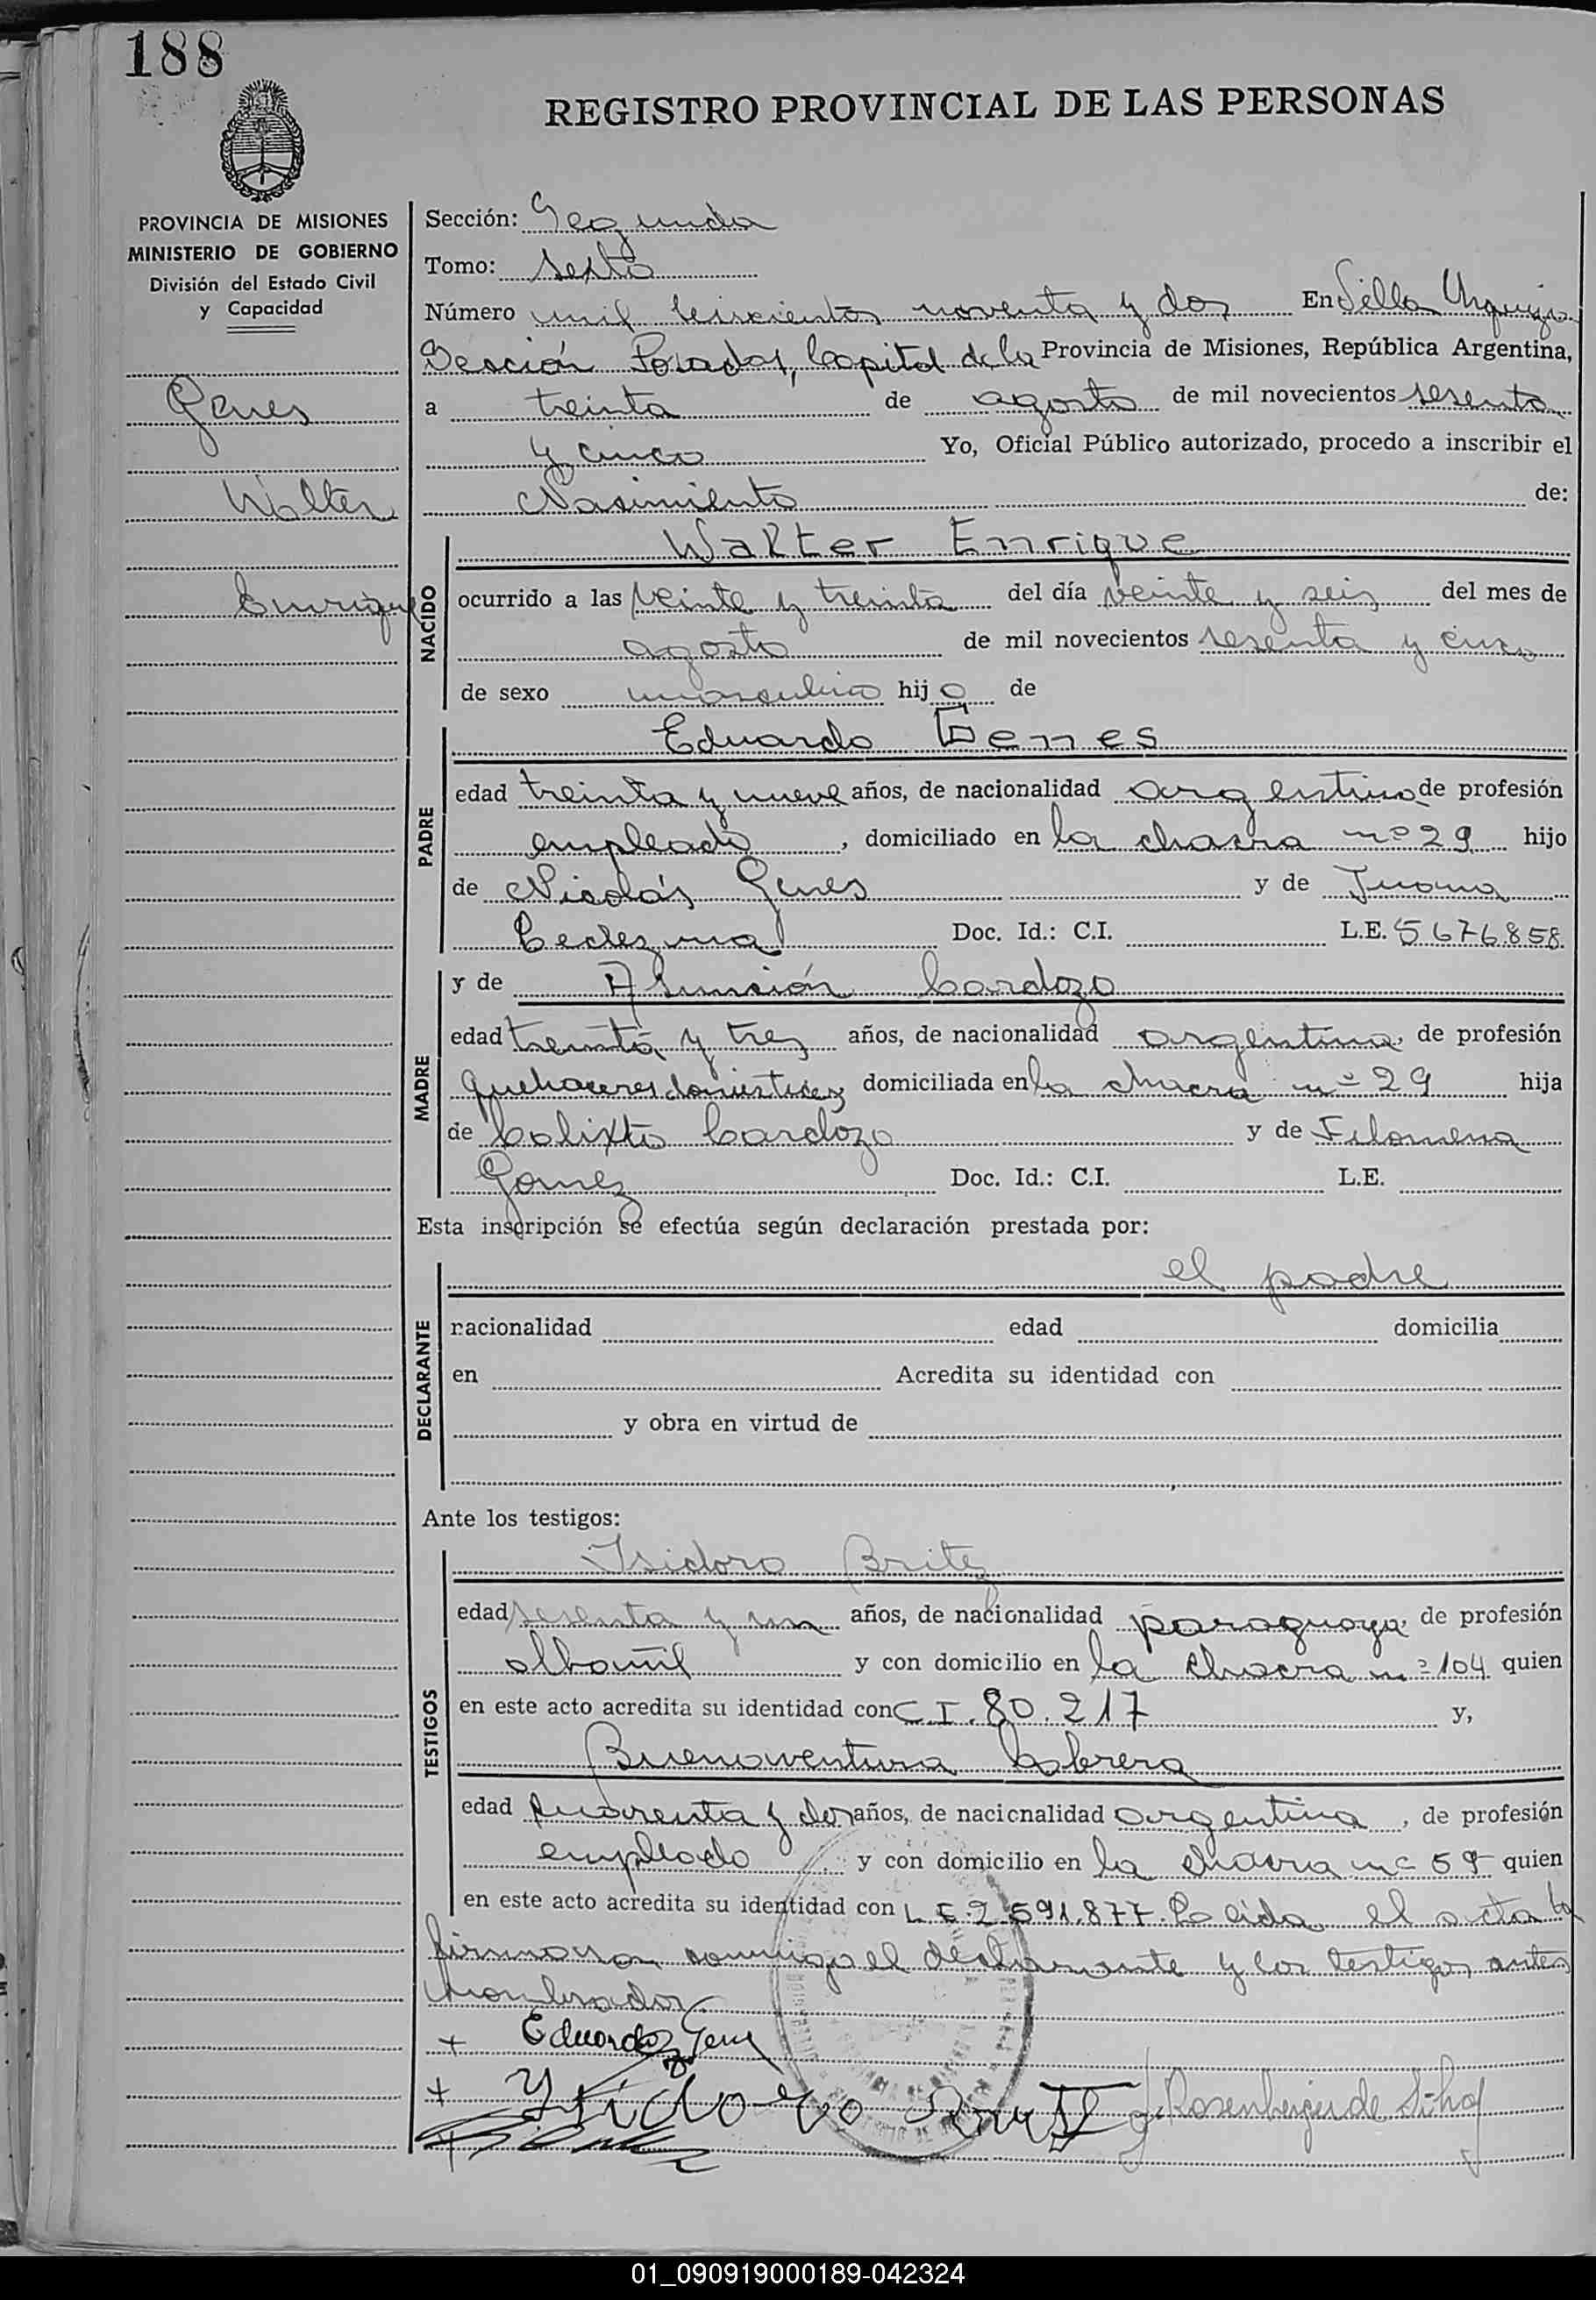 188
REGISTRO PROVINCIAL DE LAS PERSONAS
PROVINCIA DE MISIONES
MINISTERIO DE GOBIERNO
División del Estado Civil
y Capacidad
Genes
Walter
Enrique
Sección: Segunda
Tomo: Sexto
Número mil seiscientos noventa y dos En Villa Urquiza
Sección Posadas, Capital de la Provincia de Misiones, República Argentina,
a treinta de agosto de mil novecientos sesenta
y cinco Yo, Oficial Público autorizado, procedo a inscribir el
Nasimiento de:
NACIDO
Walter Enrique
ocurrido a las veinte y treinta del día veinte y seis del mes de
agosto de mil novecientos sesenta y cinco
de sexo masculino hijo de
PADRE
Eduardo Genes
edad treinta y nueve años, de nacionalidad argentino de profesión
empleado, domiciliado en la chacra nº 29 hijo
de Nicolás Genes y de Juana
Ledezma Doc. Id.: C.I. L.E. 5676.858
MADRE
y de Asunción Cardozo
edad treinta y tres años, de nacionalidad argentina, de profesión
quehaceres domésticos domiciliada en la chacra nº 29 hija
de Calixto Cardozo y de Filomena
Gomez Doc. Id.: C.I. L.E.
Esta inscripción se efectúa según declaración prestada por:
DECLARANTE
el padre
nacionalidad edad domicilia
en Acredita su identidad con
y obra en virtud de
Ante los testigos:
TESTIGOS
Isidoro Britez
edad sesenta y un años, de nacionalidad paraguaya, de profesión
albañil y con domicilio en la chacra nº 104 quien
en este acto acredita su identidad con C.I. 80.217 y,
Buenaventura Cabrera
edad cuarenta y dos años, de nacionalidad argentina, de profesión
empleado y con domicilio en la chacra nº 59 quien
en este acto acredita su identidad con L.E. 2.591.877. Leida el acta la
firmaron conmigo el declarante y los testigos antes
nombrados
+ Eduardo Gene
+ Ysidoro Brite J. Rosenberger de Silva
+
01_090919000189-042324